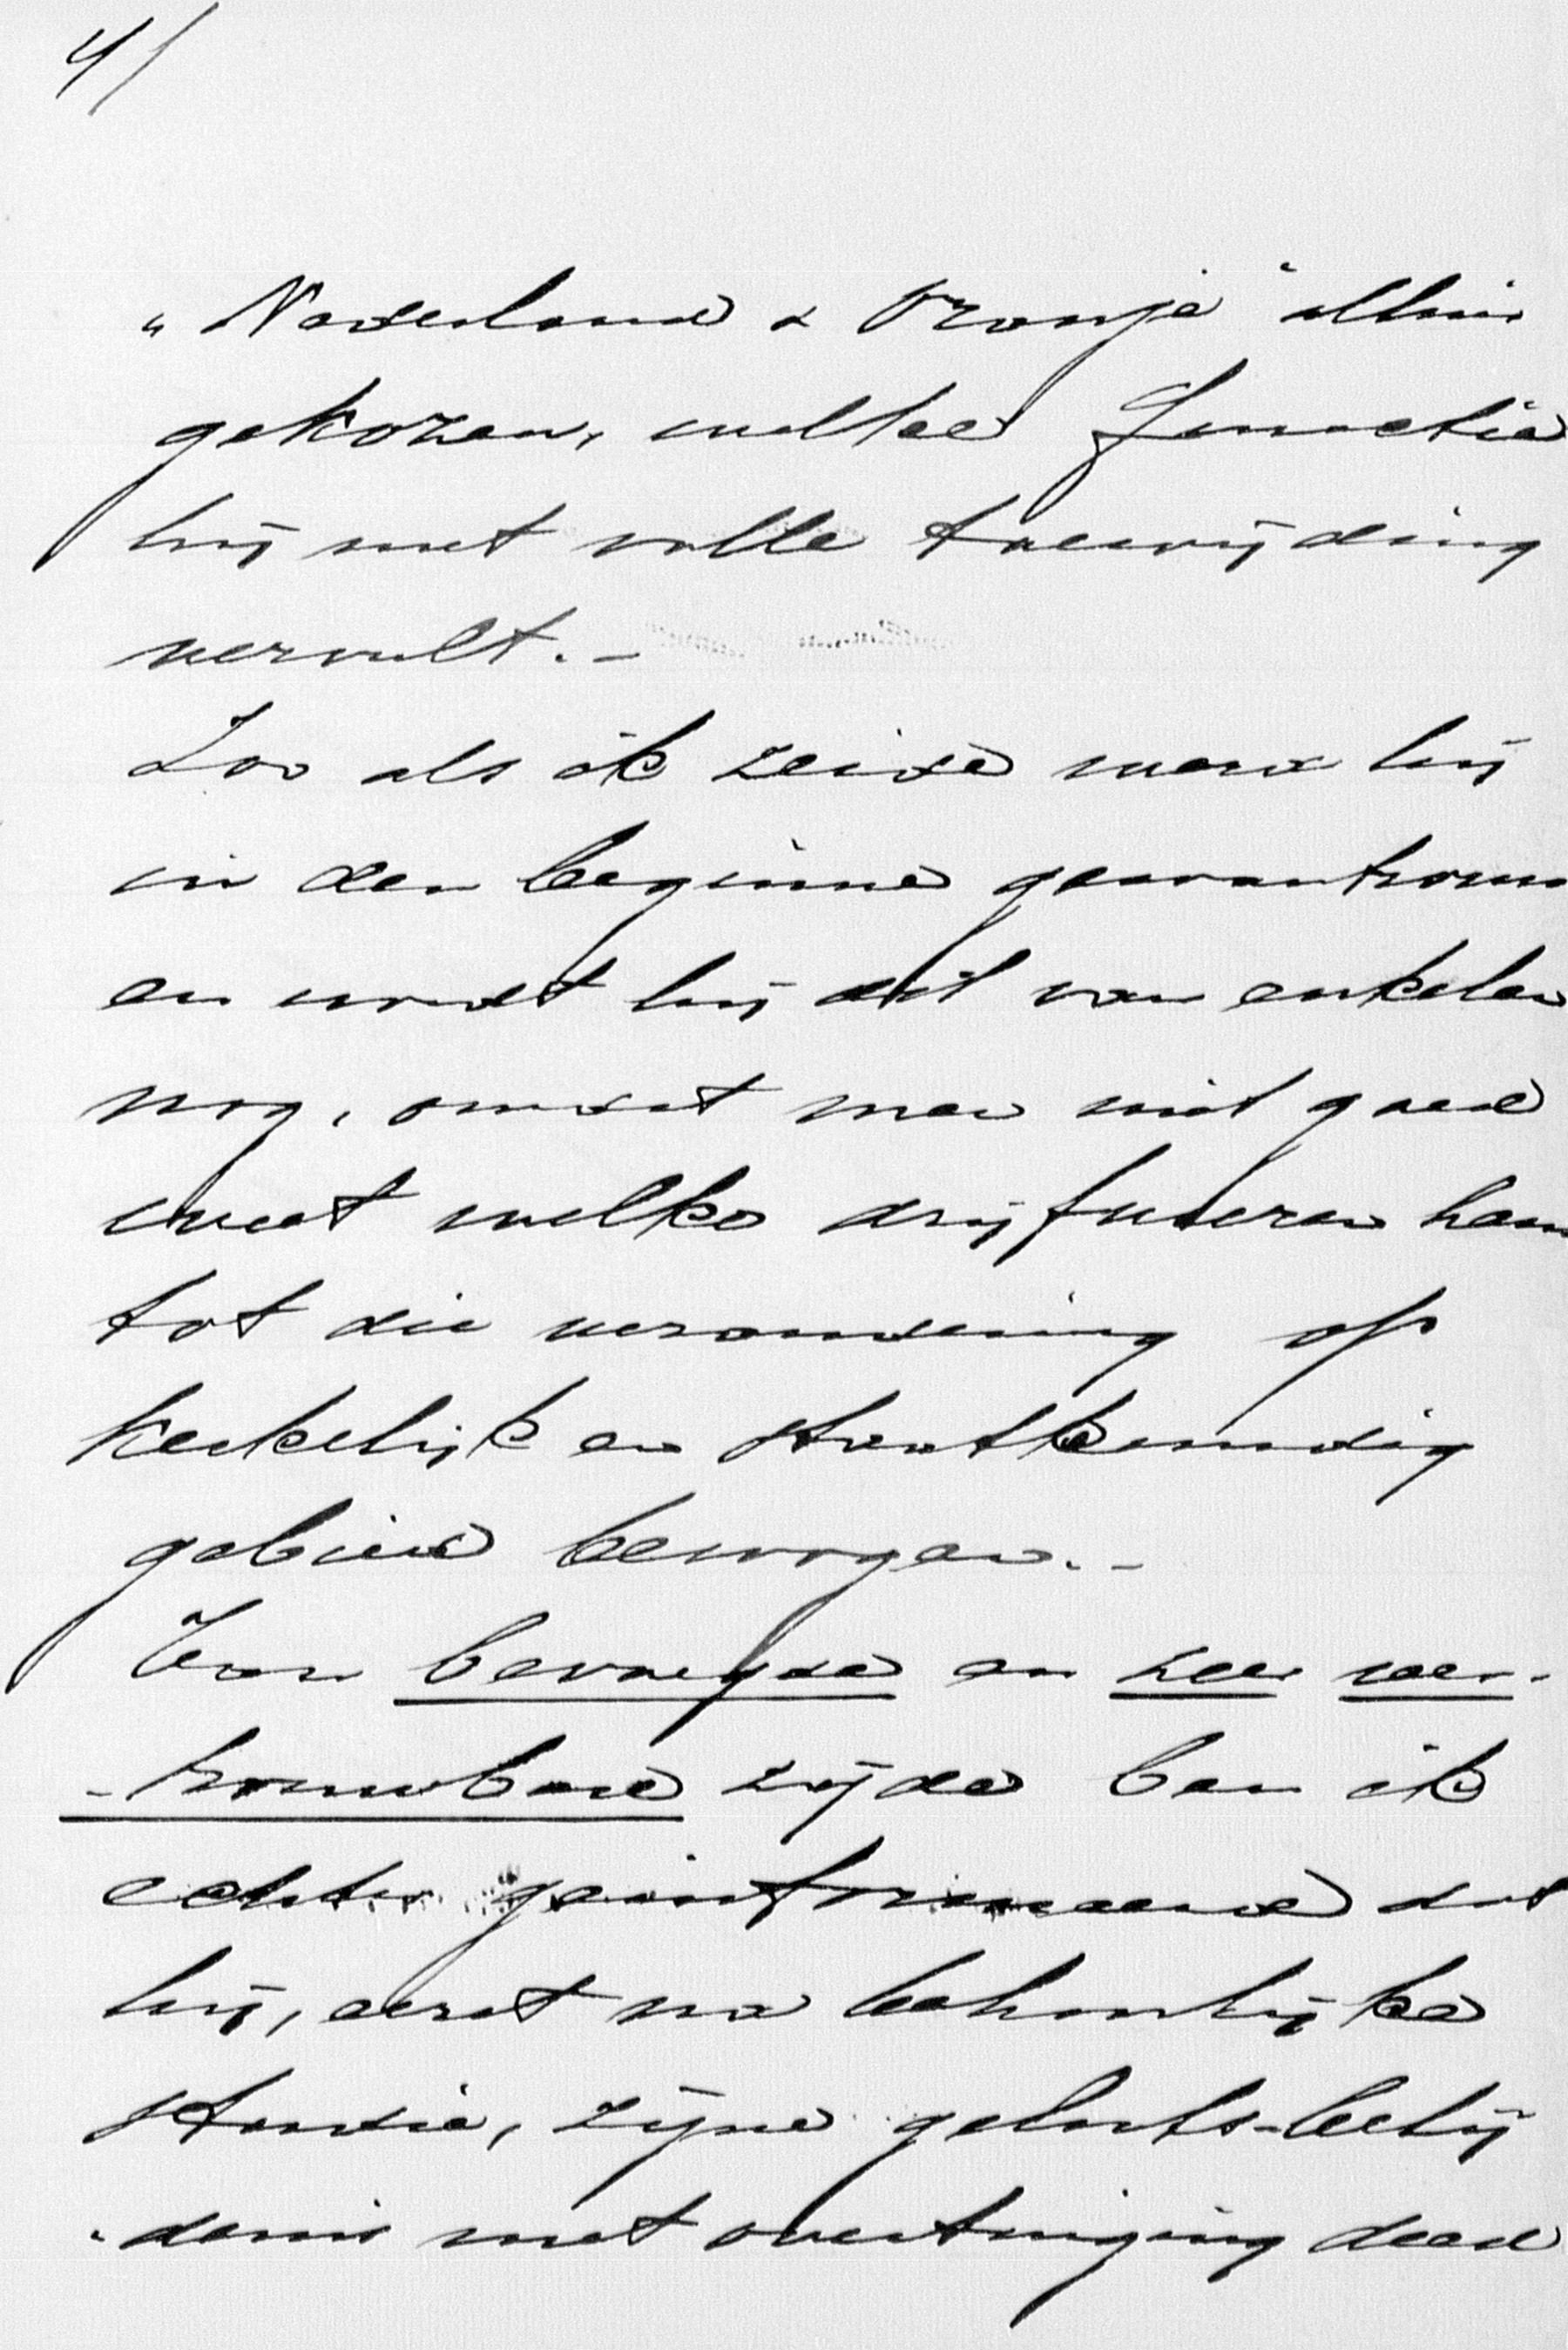 4/
„Nederland & Oranje" alhier
gekozen, welke functie
hij met volle toewijding
vervult. -
Zoo als ik zeide werd hij
in den beginne gewantrouwd
en wordt hij dit van enkelen
nog, omdat men niet goed
weet welke drijfveeren hem
tot die verandering op
kerkelijk en staatkundig
gebied bewogen. -
Van bevoegde en zeer ver-
-trouwbare zijde ben ik
echter geinformeerd dat
hij, eerst na behoorlijke
studie, zijne geloofs-belij
-denis met overtuiging deed